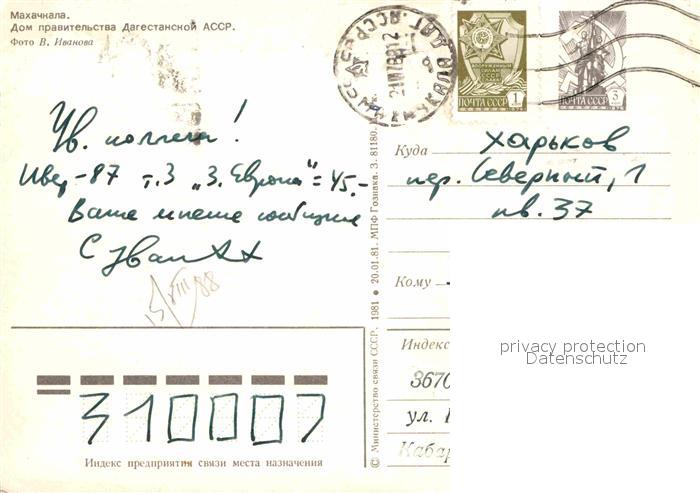 Махачкала.
Дом правительства Дагестанской АССР.
Фото В. Иванова
ПОЧТА СССР 1
ПОЧТА СССР 3
Ув. коллега!
-87 т. 3 „З. Европа" = 45.-
Ваше мнение сообщите
С уваж
15/VIII 88
Куда
Харьков
пер. Северный, 1
кв. 37
Кому
Индекс
3670
ул.
Кабар
310007
Индекс предприятия связи места назначения
© Министерство связи СССР, 1981 • 20.01.81. МПФ Гознака. З. 81180.
privacy protection
Datenschutz